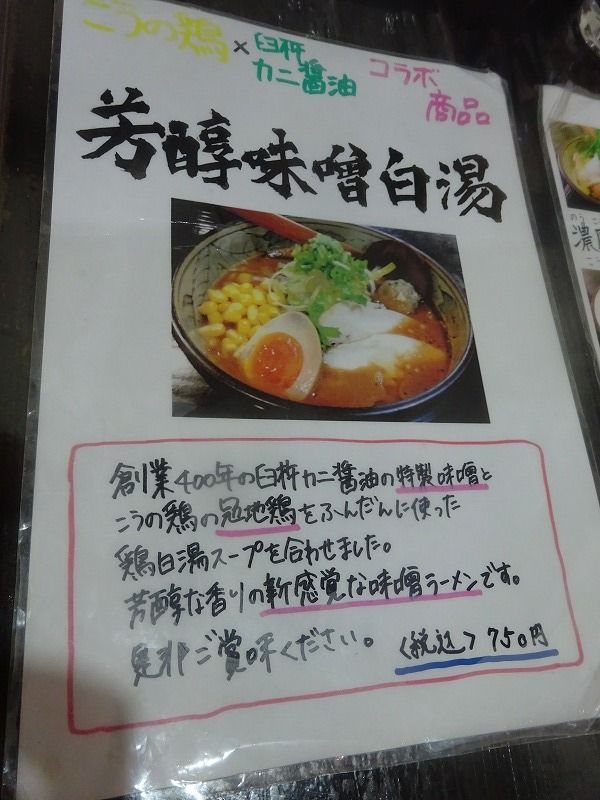 こうの鶏×臼杵カニ醤油 コラボ商品
芳醇味噌白湯
創業400年の臼杵カニ醤油の特製味噌と
こうの鶏の冠地鶏をふんだんに使った
鶏白湯スープを合わせました。
芳醇な香りの新感覚な味噌ラーメンです。
是非ご賞味ください。
〈税込〉750円
のう こ
濃